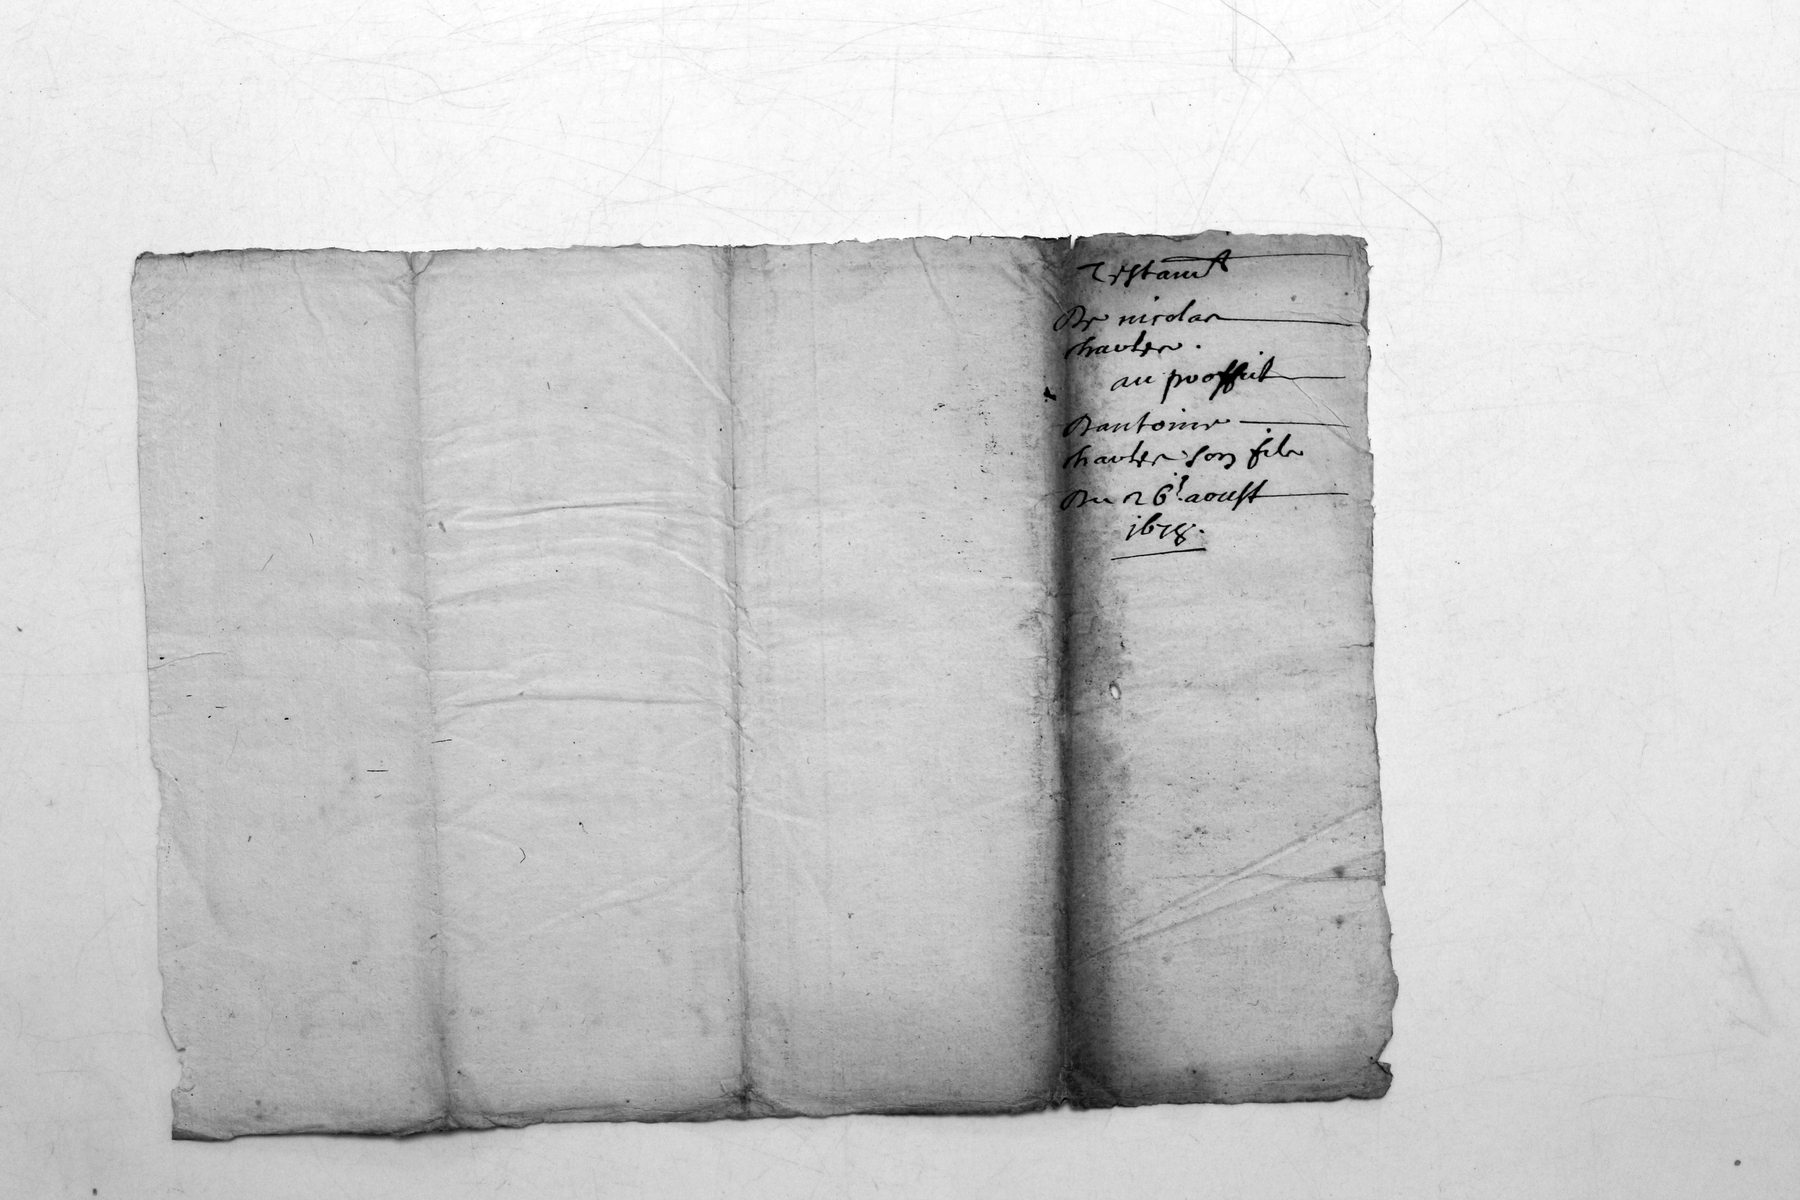 Testamt
De nicolas
chavles.
au proffict
D'antoine
chavles son fils
Du 26e aoust
1678.